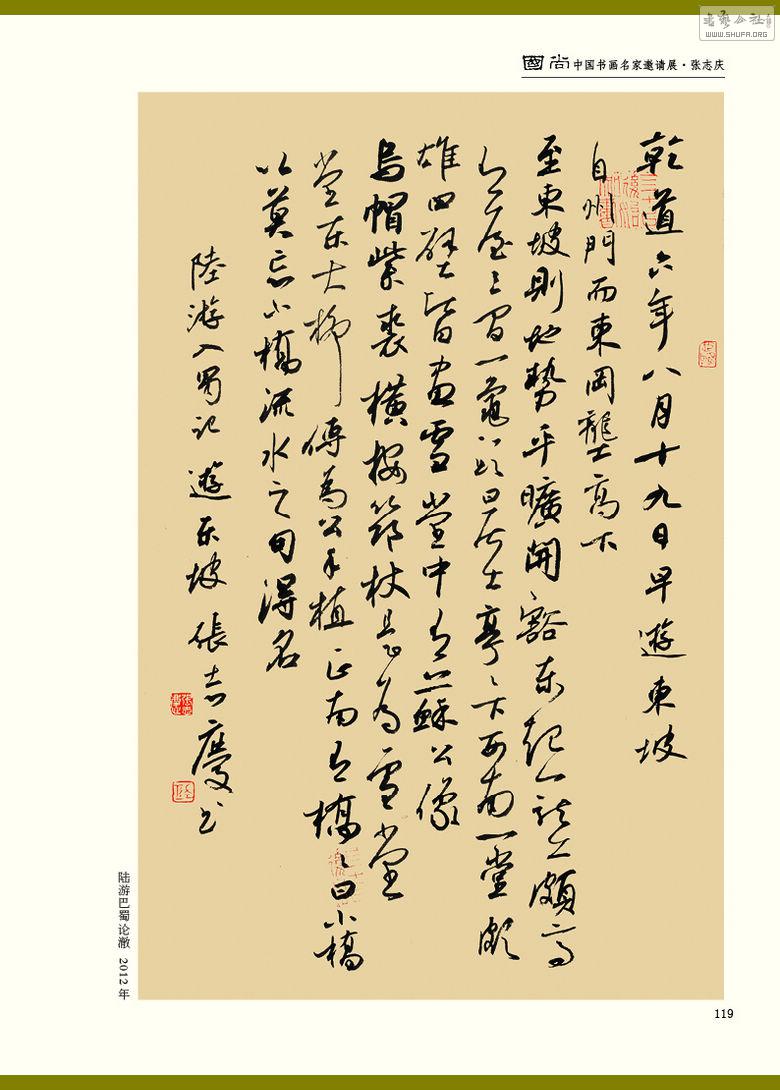 書藝公社
WWW.SHUFA.ORG
國尚 中国书画名家邀请展·张志庆
乾道六年八月十九日早遊東坡
自州門而東岡壟高下
至東坡則地勢平曠開豁東起一壟頗高
有屋三間一龜頭曰居士亭〻下面南一堂頗
雄四壁皆畫雪堂中有蘇公像
烏帽紫裘橫按筇杖是為雪堂
堂東大柳傳為公手植正南有橋〻曰小橋
以莫忘小橋流水之句得名
陸游入蜀記 遊东坡 張志慶书
陆游巴蜀论澈 2012年
119